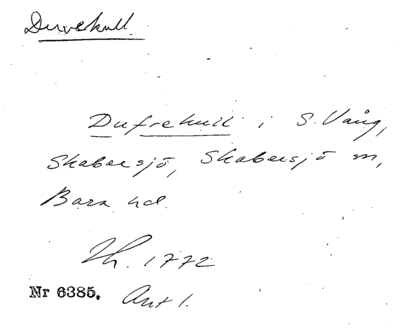 Duvekull
Dufvekull i S. Vång,
Skabersjö, Skabersjö sn,
Bara hd.
Lh. 1772
Nr 6385. Avt 1.